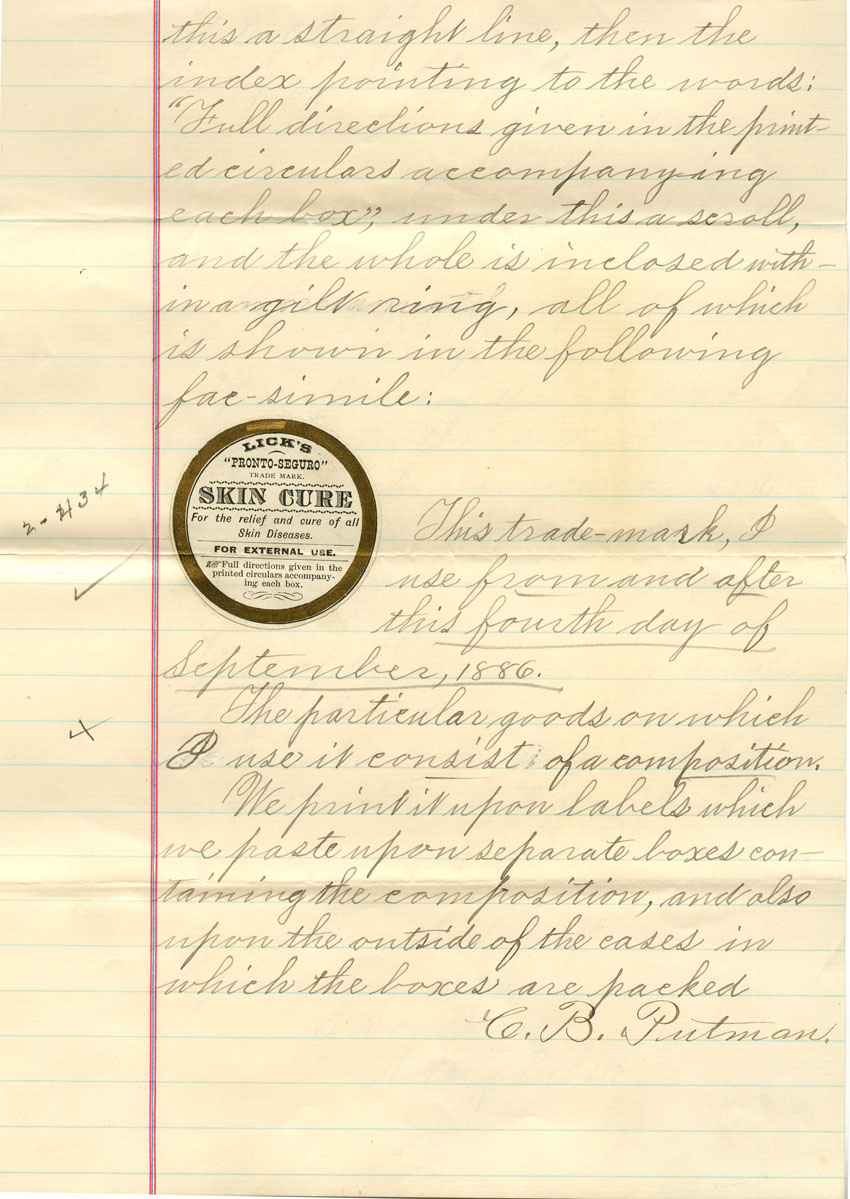 this a straight line, then the
index pointing to the words:
"Full directions given in the print-
ed circulars accompany-ing
each box", under this a scroll,
and the whole is inclosed with-
in a gilt ring, all of which
is shown in the following
fac-simile:
LICK'S
"PRONTO-SEGURO"
TRADE MARK.
SKIN CURE
For the relief and cure of all
Skin Diseases.
FOR EXTERNAL USE.
☞ Full directions given in the
printed circulars accompany-
ing each box.
This trade-mark, I
use from and after
this fourth day of
September, 1886.
The particular goods on which
I use it consist of a composition.
We print it upon labels which
we paste upon separate boxes con-
taining the composition, and also
upon the outside of the cases in
which the boxes are packed
C. B. Putman.